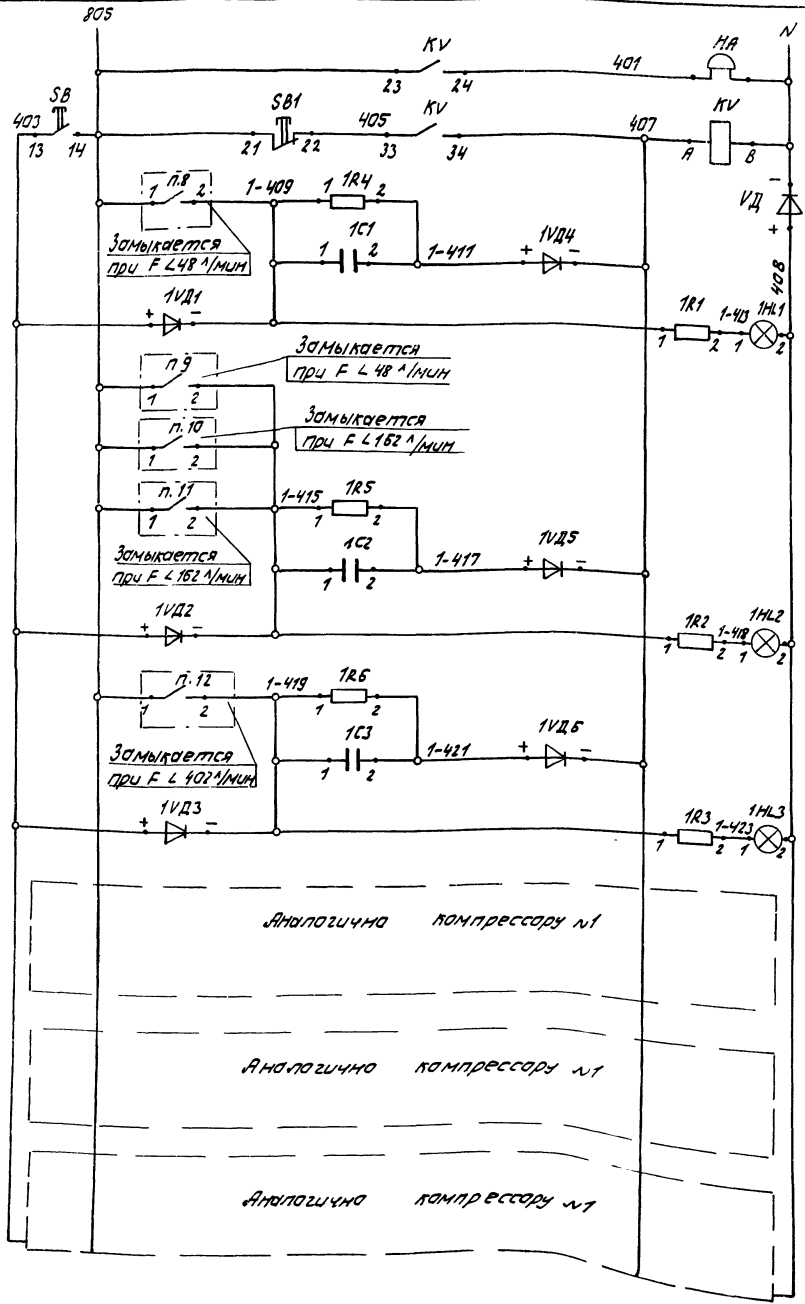 805
N
KV
401
HA
23 24
SB
SB1
KV
KV
403
405
407
13 14
21 22
33 34
A B
п.8
1 2
1-409
1R4
1 2
VД
- +
408
Замыкается
при F < 48 л/мин
1C1
1 2
1-411
1VД4
+ -
1VД1
+ -
1R1
1 2
1-413
1HL1
1 2
п.9
1 2
Замыкается
при F < 48 л/мин
п.10
1 2
Замыкается
при F < 162 л/мин
п.11
1 2
1-415
1R5
1 2
Замыкается
при F < 162 л/мин
1C2
1 2
1-417
1VД5
+ -
1VД2
+ -
1R2
1 2
1-418
1HL2
1 2
п.12
1 2
1-419
1R6
1 2
Замыкается
при F < 402 л/мин
1C3
1 2
1-421
1VД6
+ -
1VД3
+ -
1R3
1 2
1-423
1HL3
1 2
Аналогично компрессору №1
Аналогично компрессору №1
Аналогично компрессору №1